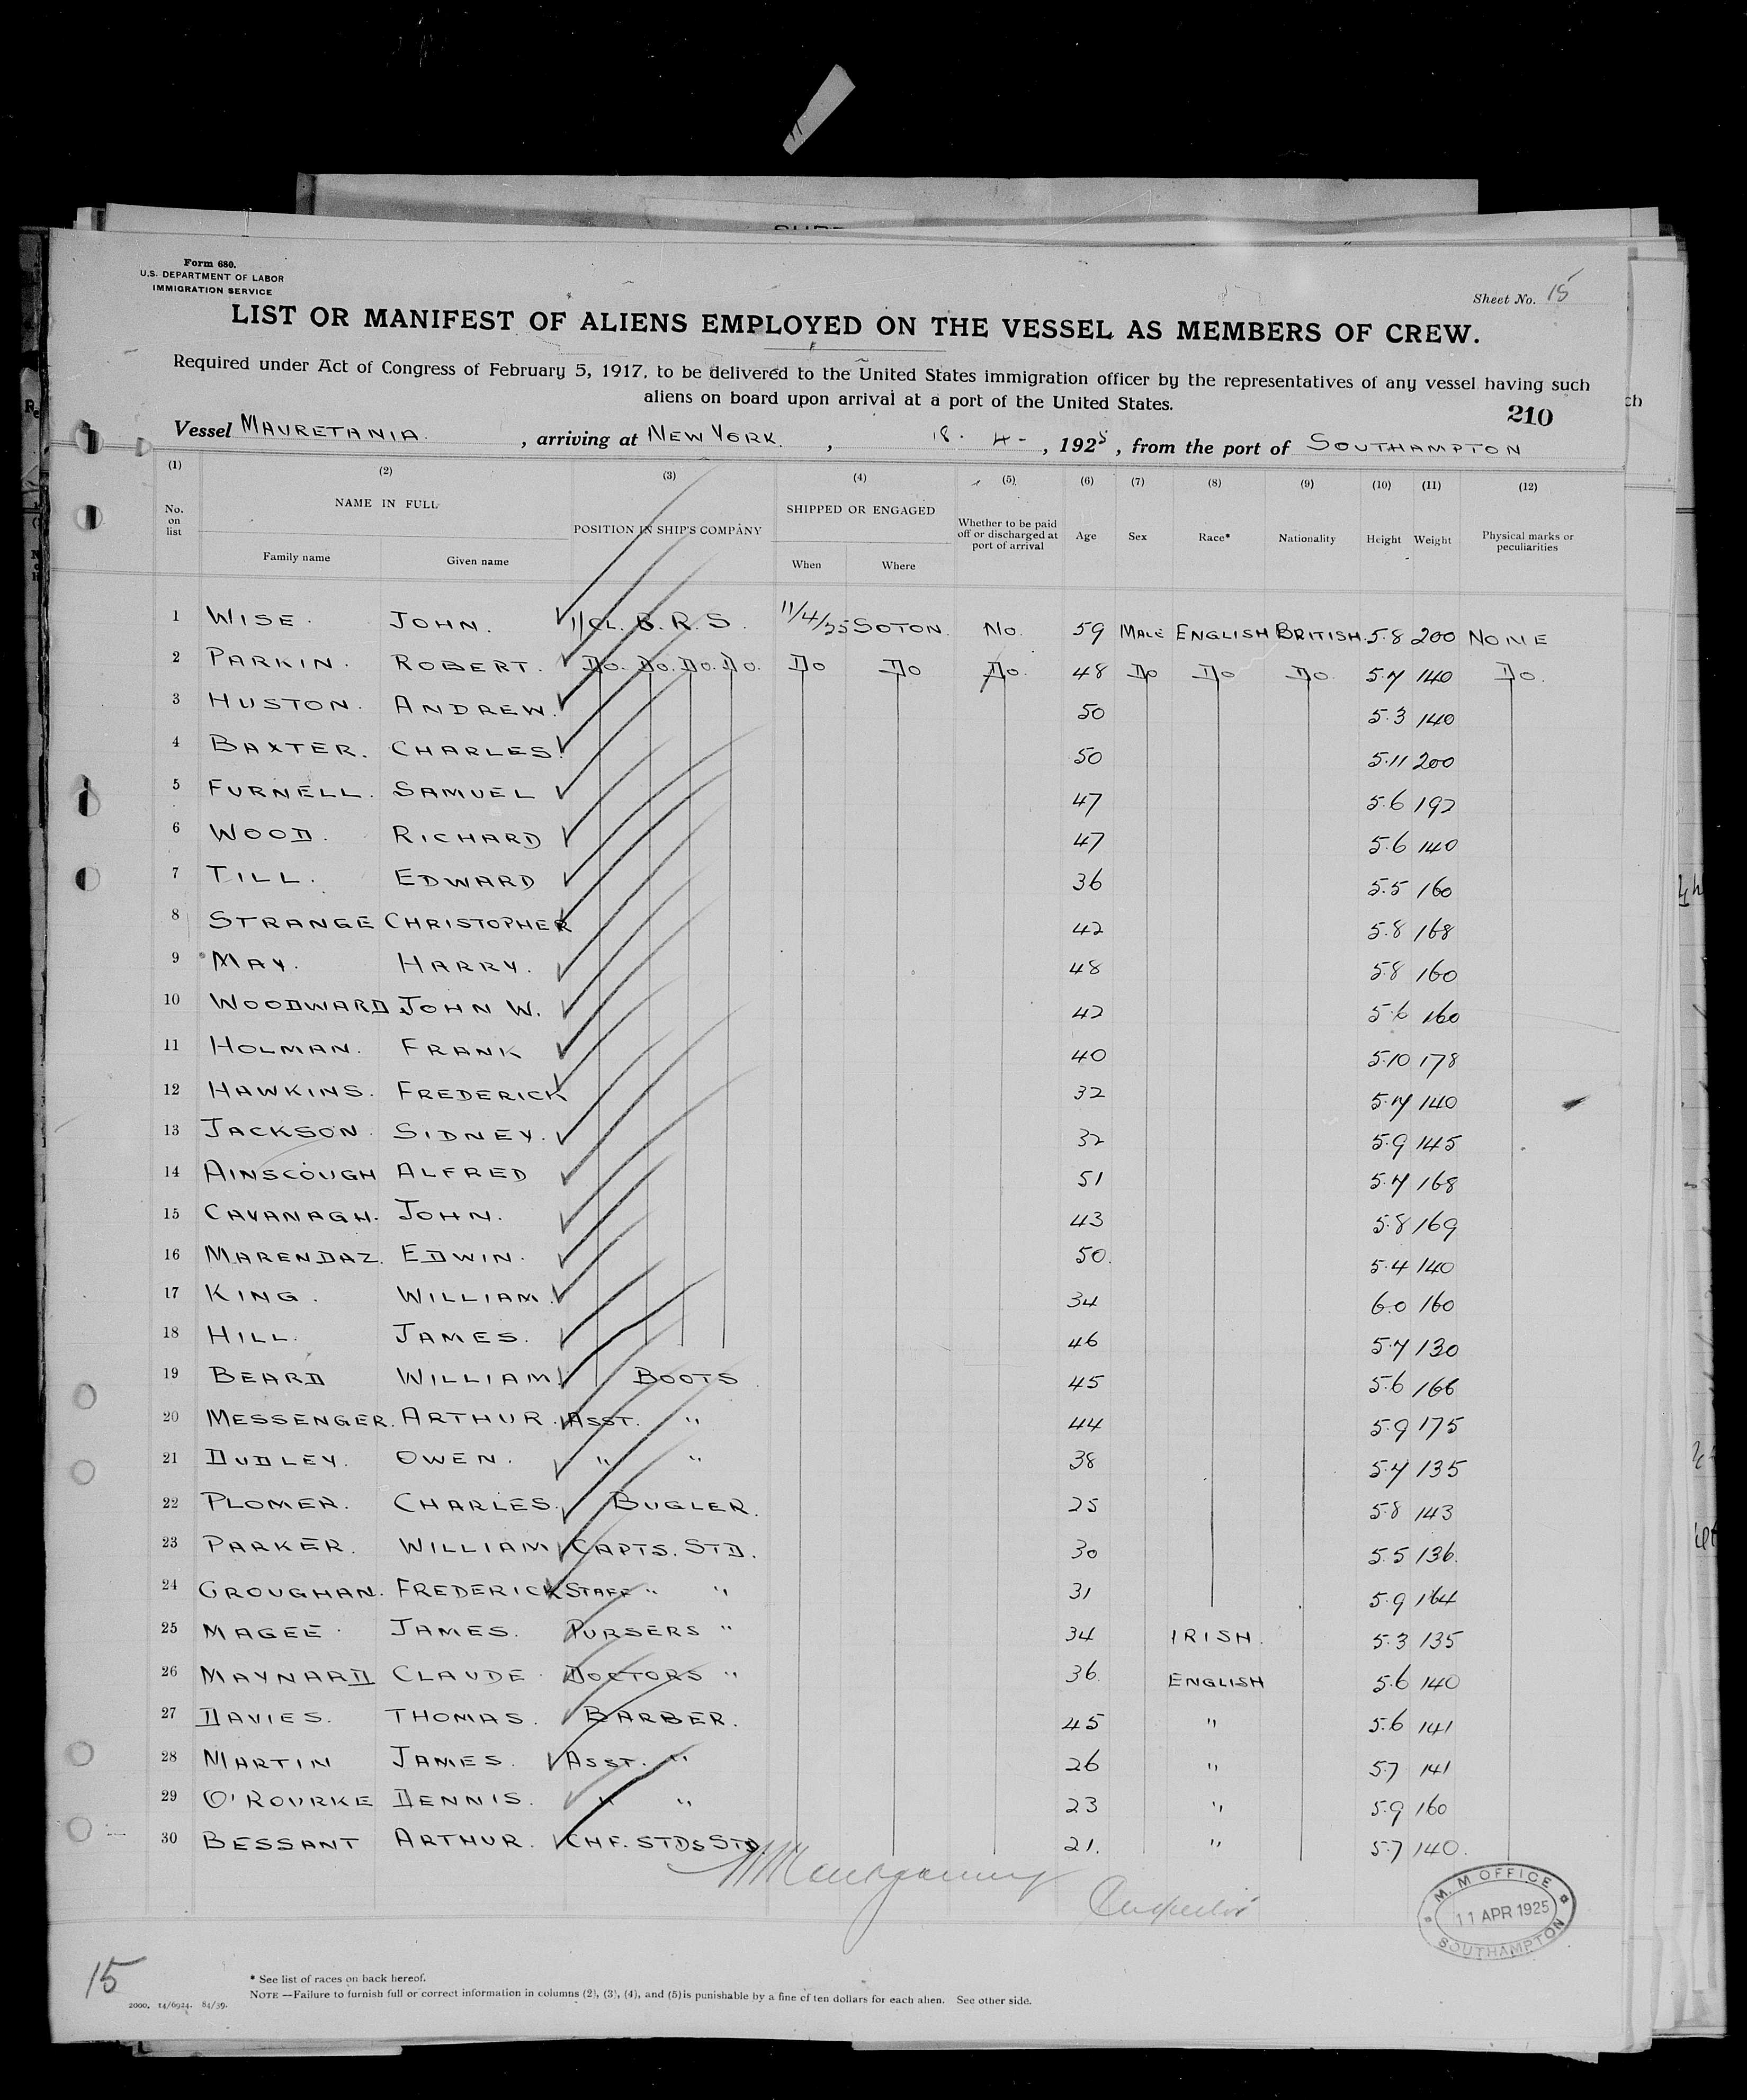 Form 680.
U.S. DEPARTMENT OF LABOR
IMMIGRATION SERVICE
Sheet No. 15
LIST OR MANIFEST OF ALIENS EMPLOYED ON THE VESSEL AS MEMBERS OF CREW.
Required under Act of Congress of February 5, 1917, to be delivered to the United States immigration officer by the representatives of any vessel having such
aliens on board upon arrival at a port of the United States.
210
Vessel MAURETANIA. , arriving at NEW YORK. , 18. 4 - , 1925 , from the port of SOUTHAMPTON
(1) (2) (3) (4) (5) (6) (7) (8) (9) (10) (11) (12)
No. on list NAME IN FULL Family name Given name POSITION IN SHIP'S COMPANY SHIPPED OR ENGAGED When Where Whether to be paid off or discharged at port of arrival Age Sex Race* Nationality Height Weight Physical marks or peculiarities
1 WISE. JOHN. 1/CL. B. R. S. 11/4/25 SOTON. No. 59 MALE ENGLISH BRITISH. 5.8 200 NONE
2 PARKIN. ROBERT. Do. Do. Do. Do. Do Do Do. 48 Do Do Do. 5.7 140 Do.
3 HUSTON. ANDREW. 50 5.3 140
4 BAXTER. CHARLES. 50 5.11 200
5 FURNELL. SAMUEL 47 5.6 192
6 WOOD. RICHARD 47 5.6 140
7 TILL. EDWARD 36 5.5 160
8 STRANGE CHRISTOPHER 42 5.8 168
9 MAY. HARRY. 48 5.8 160
10 WOODWARD JOHN W. 42 5.6 160
11 HOLMAN. FRANK 40 5.10 178
12 HAWKINS. FREDERICK 32 5.7 140
13 JACKSON SIDNEY. 32 5.9 145
14 AINSCOUGH ALFRED 51 5.7 168
15 CAVANAGH. JOHN. 43 5.8 169
16 MARENDAZ. EDWIN. 50. 5.4 140
17 KING. WILLIAM. 34 6.0 160
18 HILL. JAMES. 46 5.7 130
19 BEARD WILLIAM. BOOTS 45 5.6 166
20 MESSENGER. ARTHUR. ASST. " 44 5.9 175
21 DUDLEY. OWEN. " " 38 5.7 135
22 PLOMER. CHARLES. BUGLER. 25 5.8 143
23 PARKER. WILLIAM CAPTS. STD. 30 5.5 136.
24 GROUGHAN. FREDERICK STAFF " " 31 5.9 164
25 MAGEE. JAMES. PURSERS " 34 IRISH. 5.3 135
26 MAYNARD CLAUDE DOCTORS " 36. ENGLISH 5.6 140
27 DAVIES. THOMAS. BARBER. 45 " 5.6 141
28 MARTIN JAMES. ASST. " 26 " 5.7 141
29 O'ROURKE DENNIS. " " 23 " 5.9 160
30 BESSANT ARTHUR. CHF. STDS STD. 21. " 5.7 140.
Montgomery
M. M OFFICE
11 APR 1925
SOUTHAMPTON
15
* See list of races on back hereof.
NOTE —Failure to furnish full or correct information in columns (2), (3), (4), and (5) is punishable by a fine of ten dollars for each alien. See other side.
2000. 14/6924. 84/39.